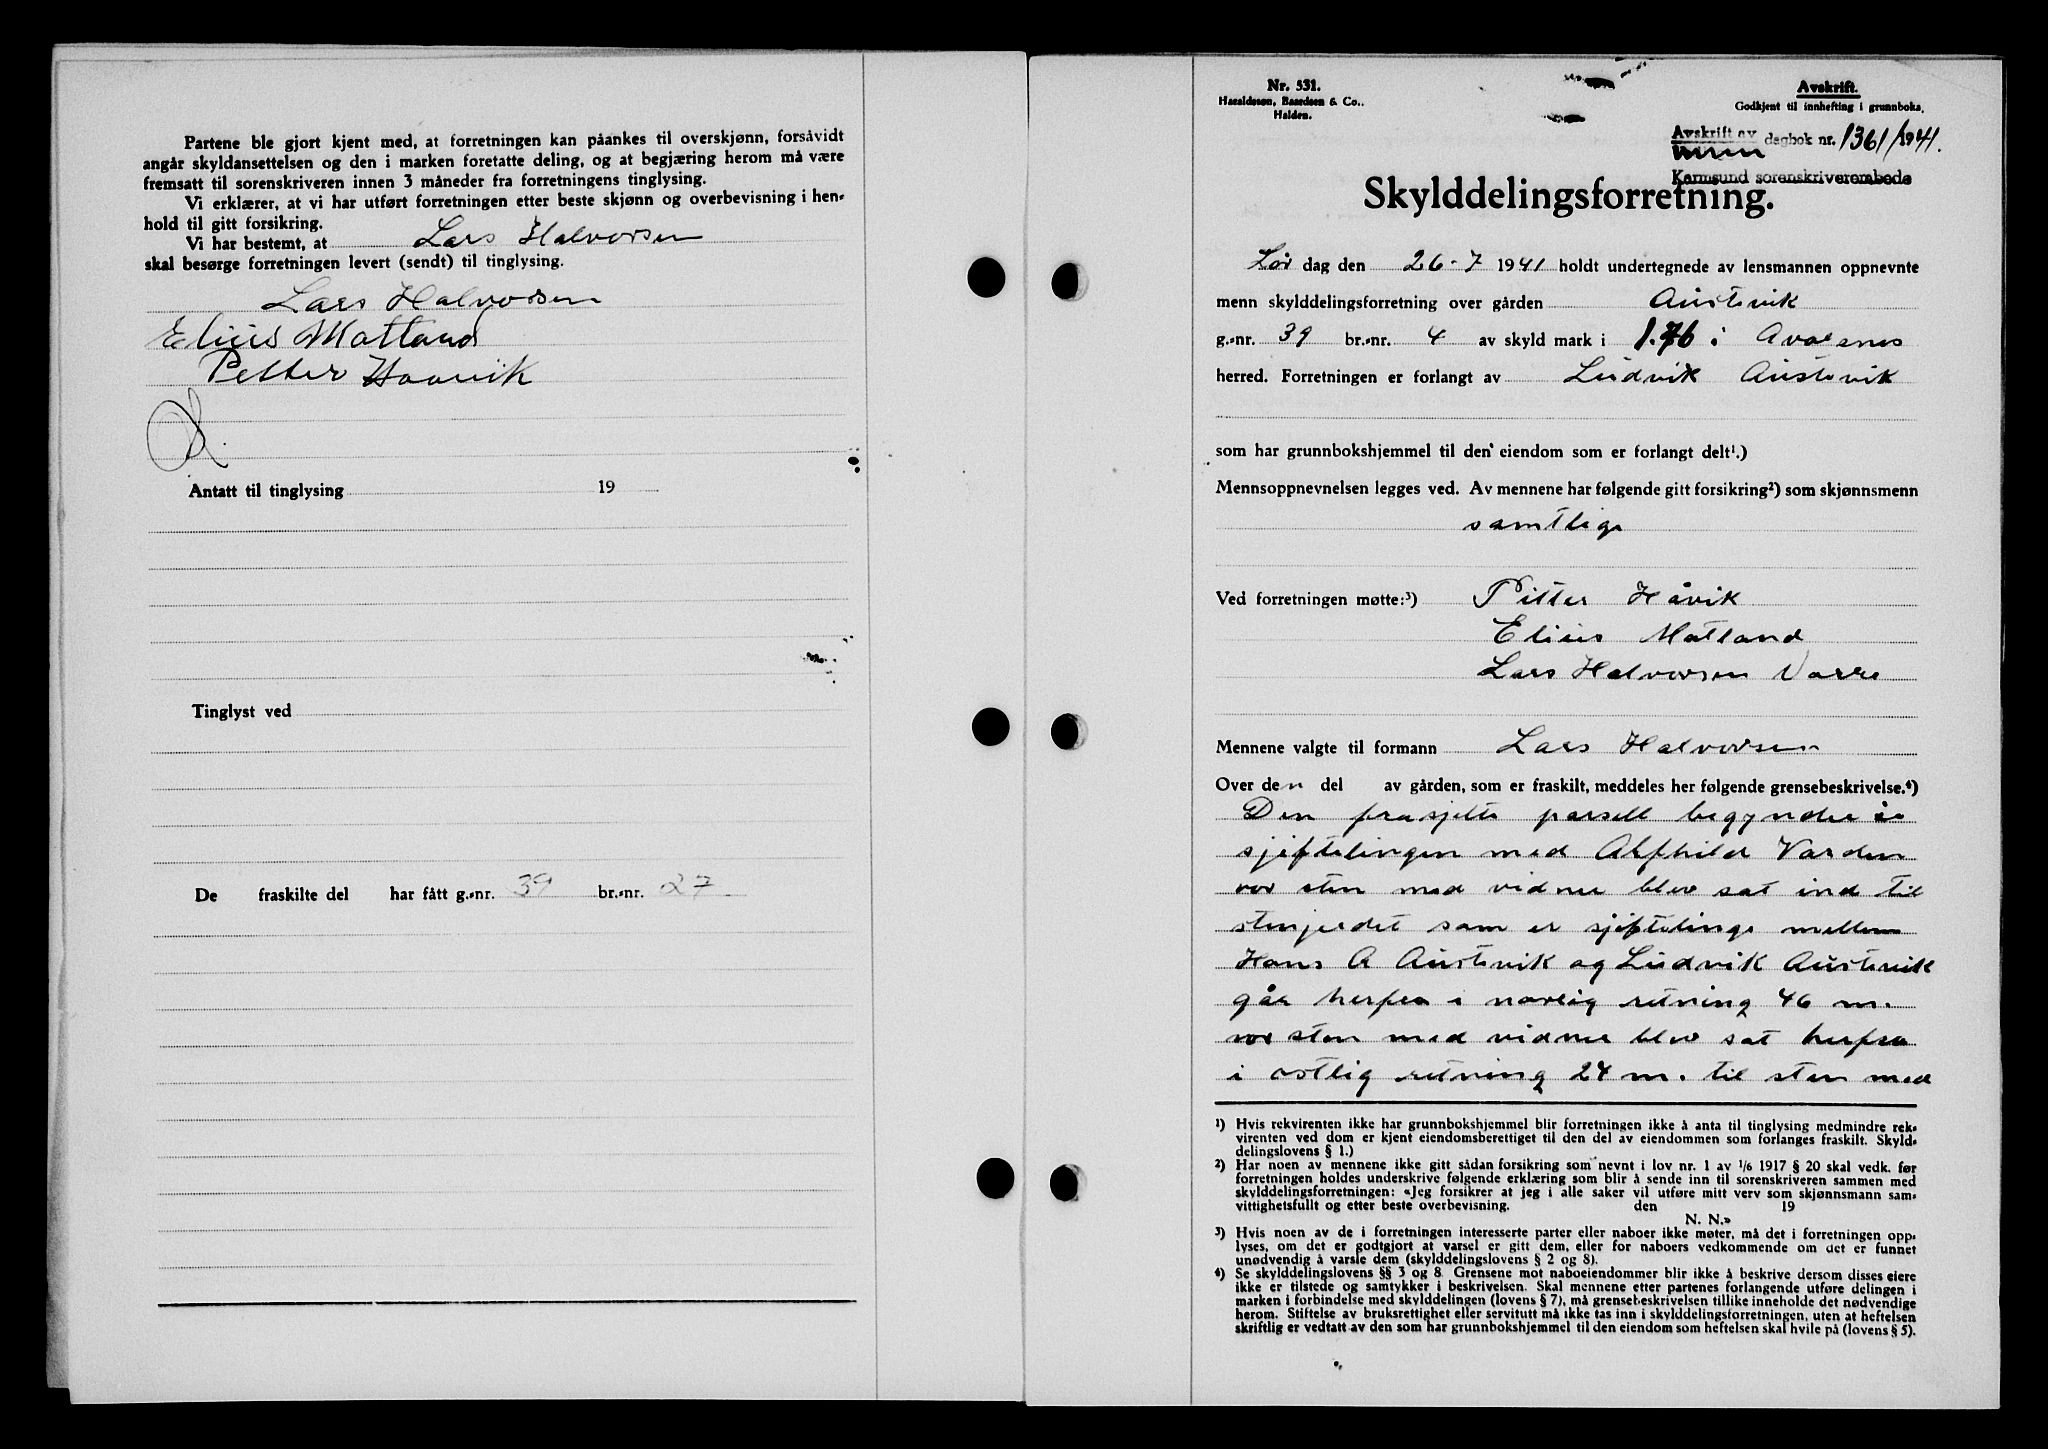 Partene ble gjort kjent med, at forretningen kan påankes til overskjønn, forsåvidt
angår skyldansettelsen og den i marken foretatte deling, og at begjæring herom må være
fremsatt til sorenskriveren innen 3 måneder fra forretningens tinglysing.
Vi erklærer, at vi har utført forretningen etter beste skjønn og overbevisning i hen-
hold til gitt forsikring.
Vi har bestemt, at Lars Halvorsen
skal besørge forretningen levert (sendt) til tinglysing.
Lars Halvorsen
Elius Matland
Petter Haavik
Antatt til tinglysing 19
Tinglyst ved
De fraskilte del har fått g.-nr. 39 br.-nr. 27
Nr. 531.
Haraldssøn, Baardsen & Co..
Halden.
Avskrift.
Godkjent til innhefting i grunnboka.
Avskrift av dagbok nr. 1361/1941.
Karmsund sorenskriverembede
Skylddelingsforretning.
Lør dag den 26-7 1941 holdt undertegnede av lensmannen oppnevnte
menn skylddelingsforretning over gården Austevik
g.-nr. 39 br.-nr. 4 av skyld mark i 1.76 i Avalsnes
herred. Forretningen er forlangt av Ludvik Austevik
som har grunnbokshjemmel til den eiendom som er forlangt delt¹.)
Mennsoppnevnelsen legges ved. Av mennene har følgende gitt forsikring²) som skjønnsmenn
samtlige
Ved forretningen møtte:³) Pitter Håvik
Elius Matland
Lars Halvorsen Varre
Mennene valgte til formann Lars Halvorsen
Over den del av gården, som er fraskilt, meddeles her følgende grensebeskrivelse.⁴)
Den frasjelte parsell begynder i
sjiftelingen med Alfhild Varden
vor sten med vidner blev sat ind til
stenjerdet som er sjiftelinge mellem
Hans A Austevik og Ludvik Austevik
går herfra i norlig retning 46 m.
vor sten med vidner blev sat herfra
i ostlig retning 24 m. til sten med
¹) Hvis rekvirenten ikke har grunnbokshjemmel blir forretningen ikke å anta til tinglysing medmindre rek-
virenten ved dom er kjent eiendomsberettiget til den del av eiendommen som forlanges fraskilt. Skyld-
delingslovens § 1.)
²) Har noen av mennene ikke gitt sådan forsikring som nevnt i lov nr. 1 av 1/6 1917 § 20 skal vedk. før
forretningen holdes underskrive følgende erklæring som blir å sende inn til sorenskriveren sammen med
skylddelingsforretningen: «Jeg forsikrer at jeg i alle saker vil utføre mitt verv som skjønnsmann sam-
vittighetsfullt og etter beste overbevisning. den 19
N. N.»
³) Hvis noen av de i forretningen interesserte parter eller naboer ikke møter, må det i forretningen opp-
lyses, om det er godtgjort at varsel er gitt dem, eller for naboers vedkommende om det er funnet
unødvendig å varsle dem (skylddelingslovens § 2 og 8).
⁴) Se skylddelingslovens §§ 3 og 8. Grensene mot naboeiendommer blir ikke å beskrive dersom disses eiere
ikke er tilstede og samtykker i beskrivelsen. Skal mennene etter partenes forlangende utføre delingen i
marken i forbindelse med skylddelingen (lovens § 7), må grensebeskrivelsen tillike inneholde det nødvendige
herom. Stiftelse av bruksrettighet eller servitutt må ikke tas inn i skylddelingsforretningen, uten at heftelsen
skriftlig er vedtatt av den som har grunnbokshjemmel til den eiendom som heftelsen skal hvile på (lovens § 5).